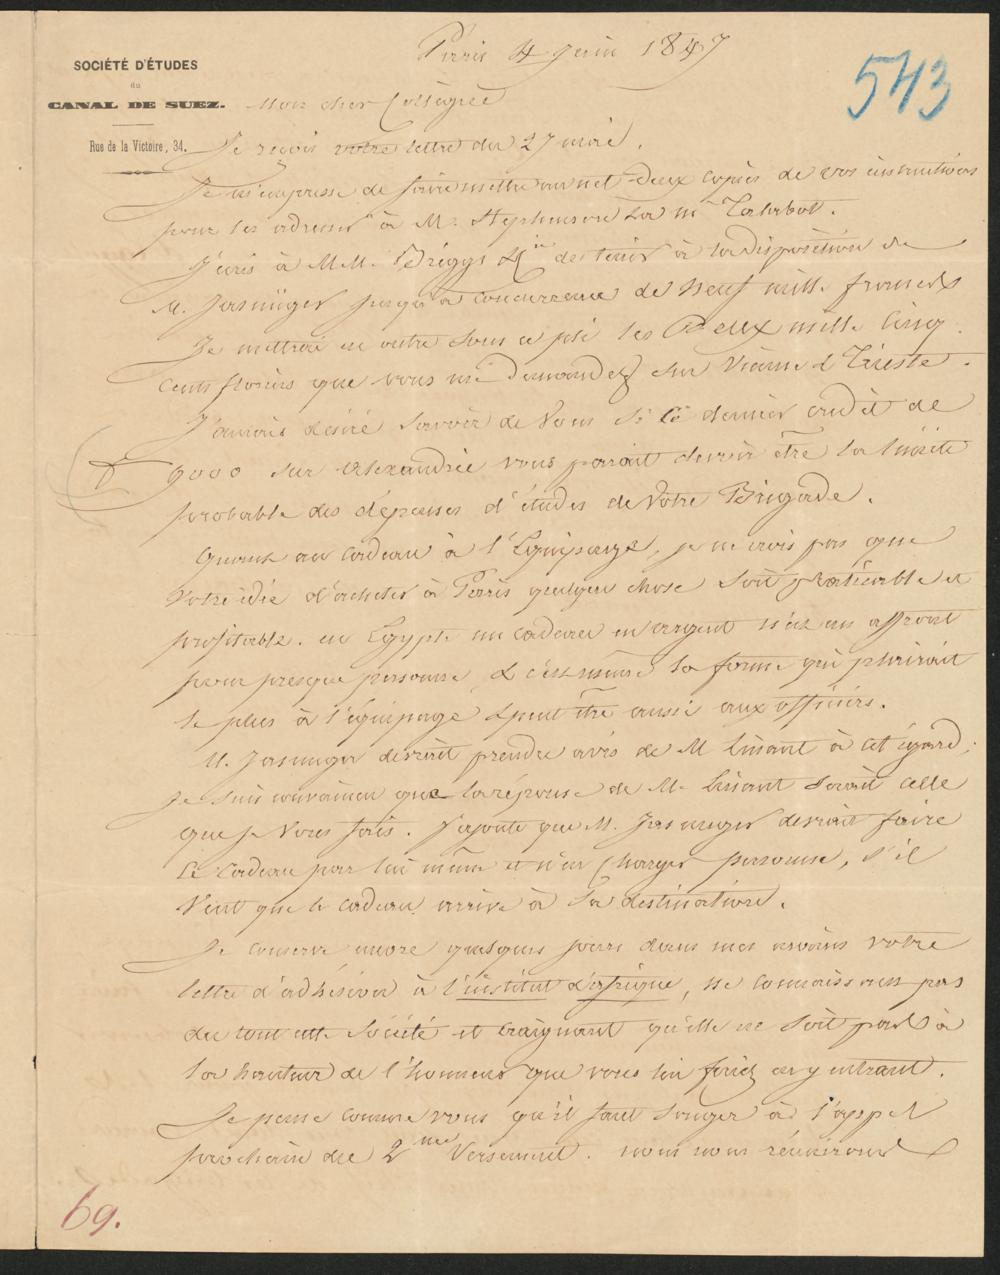 Paris 4 Juin 1847
543
SOCIÉTÉ D'ÉTUDES
du
CANAL DE SUEZ.
Rue de la Victoire, 34.
Mon cher Collègue
Je reçois votre lettre du 27 mai.
Je m'empresse de faire mettre au net deux copies de vos instructions
pour les adresser à M. Stephenson & à M. Talabot.
J'écris à M.M. Briggs & Cie de tenir à la disposition de
M. Jasmüger jusqu'à concurrence de Neuf mille francs
Je mettrai en outre sous ce pli les Deux mille Cinq
Cents florins que vous me demandez sur Vienne & Trieste.
J'aurais désiré savoir de Vous si ce dernier crédit de
9000 sur Alexandrie vous parait devoir être la limite
probable des dépenses d'études de Votre Brigade.
Quant au cadeau à l'Equipage, je ne crois pas que
votre idée d'acheter à Paris quelque chose soit praticable et
profitable. en Egypte un cadeau en argent n'est un affront
pour presque personne, & c'est même la forme qui plairait
le plus à l'équipage & peut être aussi aux officiers.
M. Jasmuger devrait prendre avis de M Linant à cet égard;
je suis convaincu que la réponse de M. Linant serait celle
que je Vous fais. J'ajoute que M. Jasmuger devrait faire
le cadeau par lui même et n'en charger personne, s'il
Veut que le cadeau arrive à sa destination.
Je conserve encore quelques jours dans mes mains votre
lettre d'adhésion à l'institut d'afrique, ne connaissant pas
du tout cette Société et craignant qu'elle ne soit pas à
la hauteur de l'honneur que vous lui feriez en y entrant.
Je pense comme vous qu'il faut songer à l'appel
prochain du 2me Versement. nous nous réunirons
69.